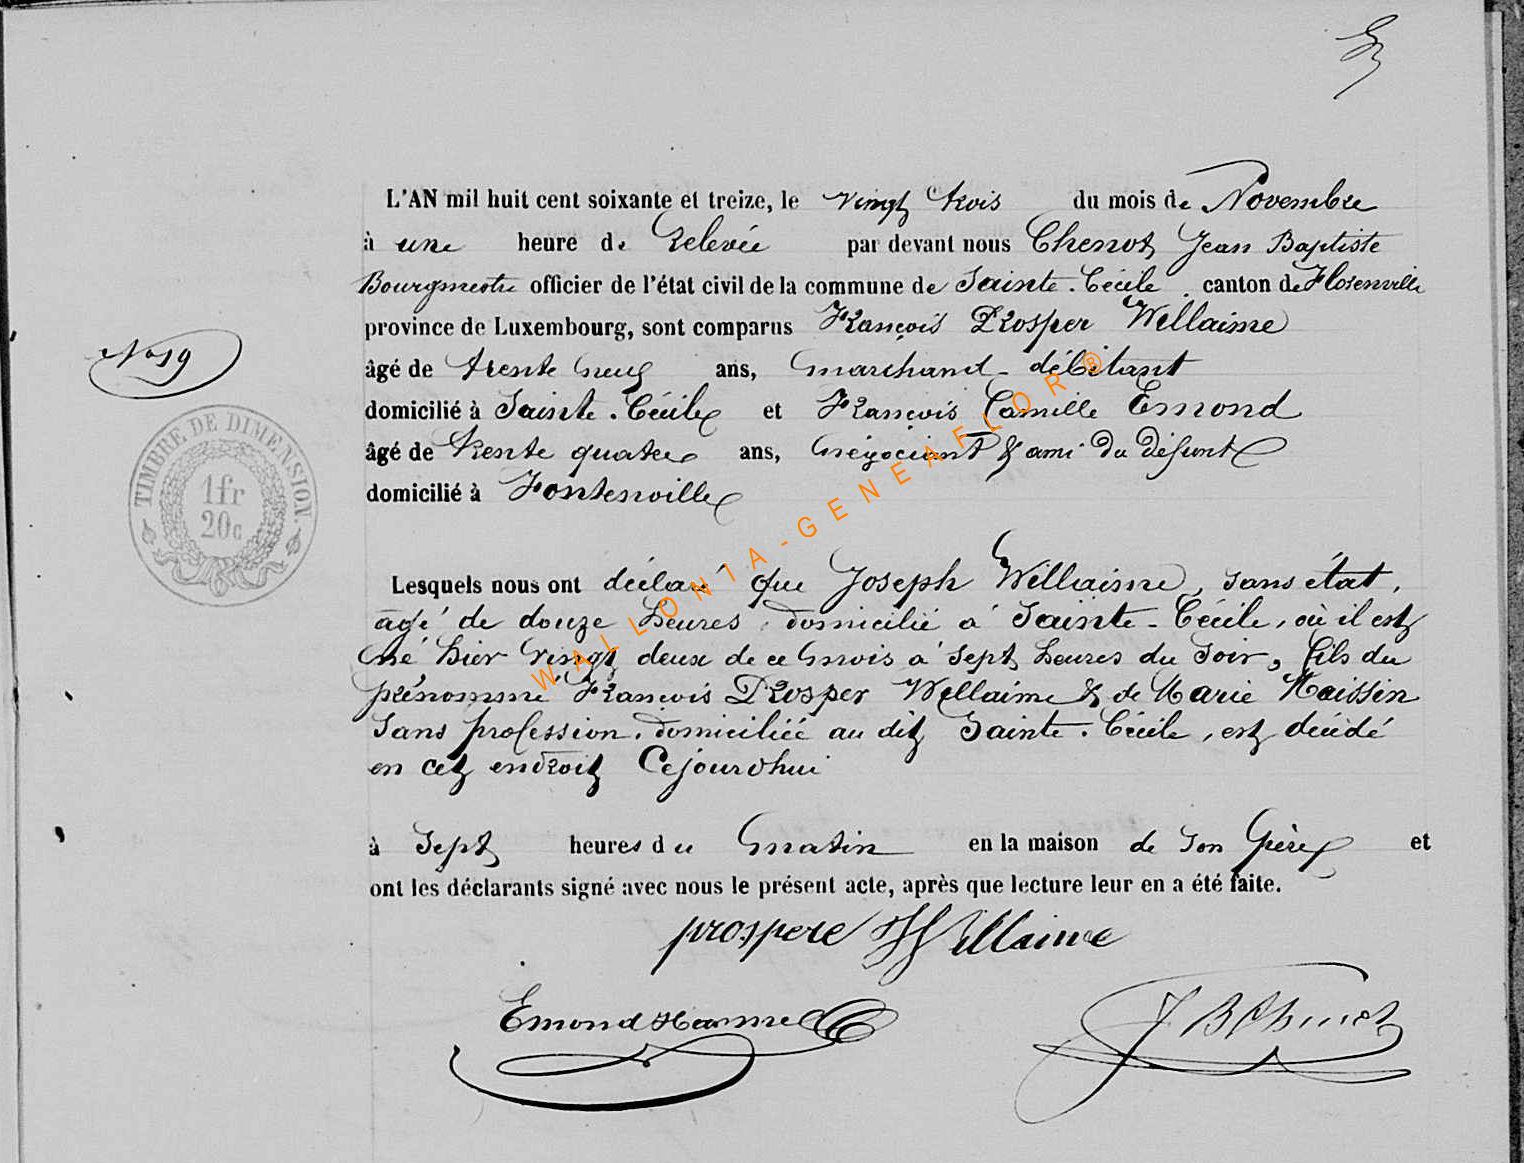 L'AN mil huit cent soixante et treize, le vingt trois du mois de Novembre
à une heure de relevée par devant nous Chenot Jean Baptiste
Bourgmestre officier de l'état civil de la commune de Sainte-Cécile canton de Florenville
province de Luxembourg, sont comparus François Prosper Willaime
No 19
âgé de trente neuf ans, marchand-débitant
domicilié à Sainte-Cécile et François Camille Emond
âgé de trente quatre ans, négociant & ami du défunt
domicilié à Fontenoille
TIMBRE DE DIMENSION.
1fr
20c
WALLONIA-GENEAFLOR®
Lesquels nous ont déclaré que Joseph Willaime, sans état,
âgé de douze heures, domicilié à Sainte-Cécile, où il est
né hier vingt deux de ce mois à sept heures du soir, fils du
prénommé François Prosper Willaime & de Marie Maissin
sans profession, domiciliée au dit Sainte-Cécile, est décédé
en cet endroit cejourd'hui
à sept heures du matin en la maison de son père et
ont les déclarants signé avec nous le présent acte, après que lecture leur en a été faite.
prospere Willaime
Emond
J B Chenot